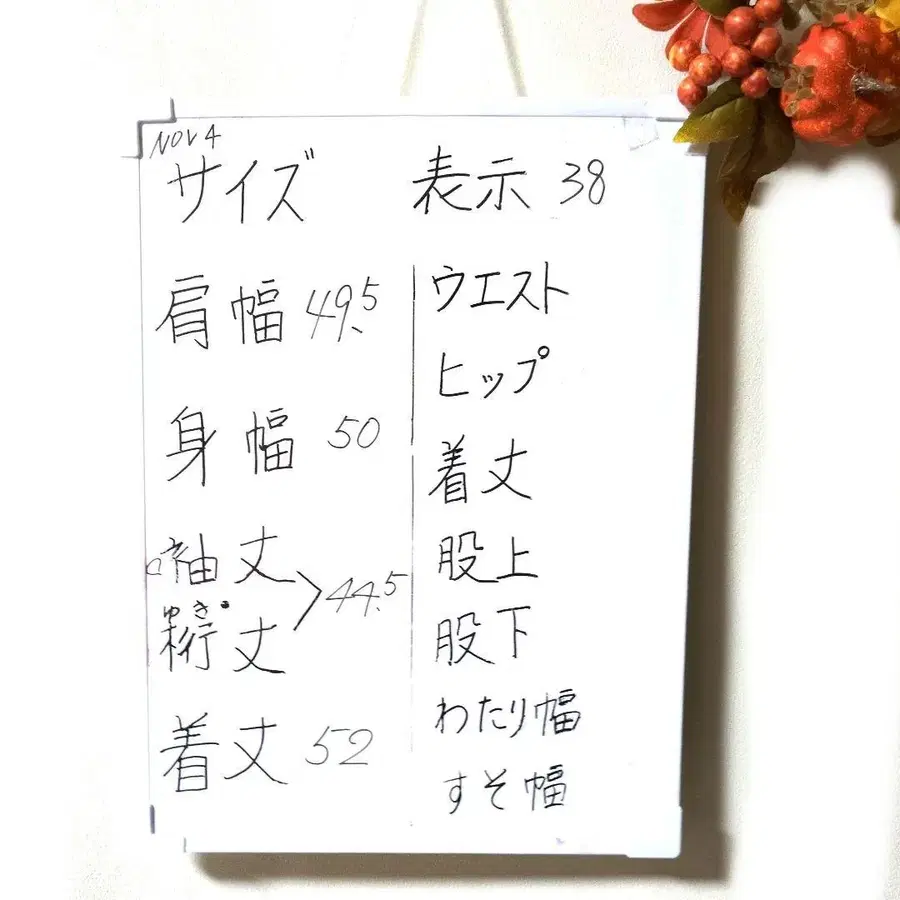 NOV 4
サイズ 表示 38
肩幅 49.5
身幅 50
袖丈
ゆき
裄丈
44.5
着丈 52
ウエスト
ヒップ
着丈
股上
股下
わたり幅
すそ幅